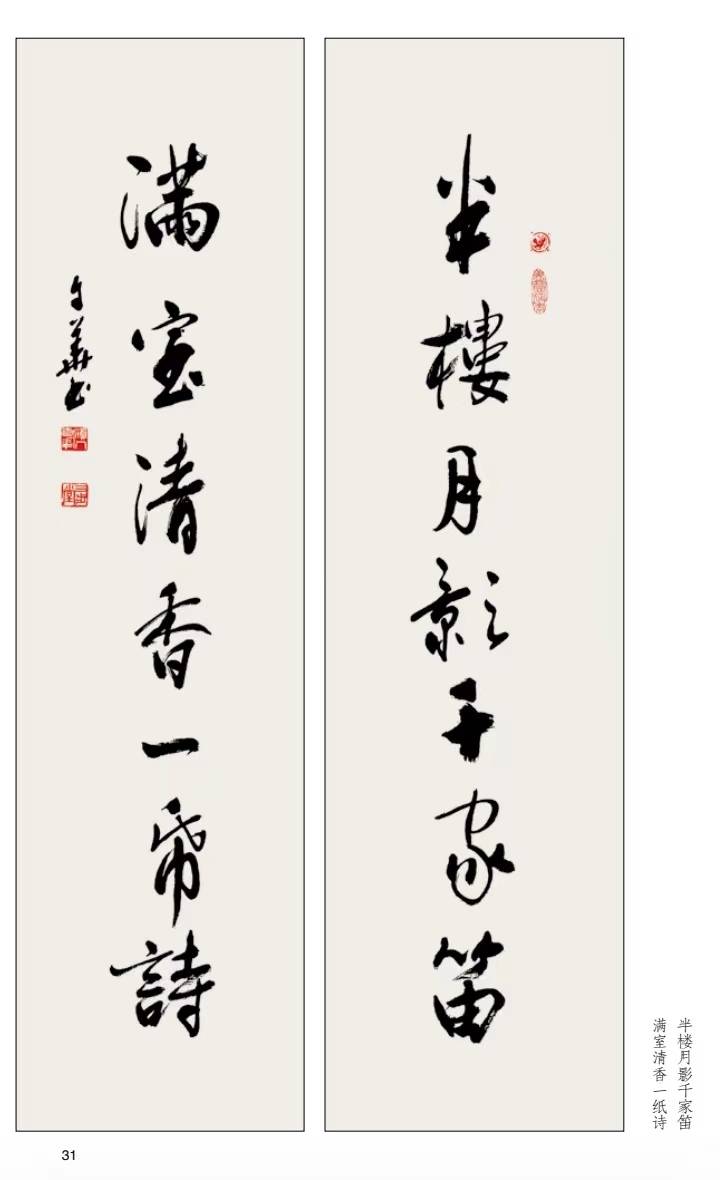 半樓月影千家笛
滿室清香一帋詩
半楼月影千家笛
满室清香一纸诗
31